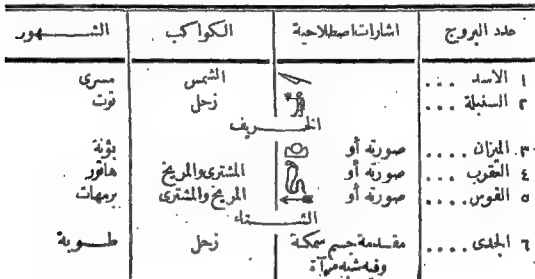 عدد البروج اشارات اصطلاحية الكواكب الشـــهور
١ الاسد .... الشمس مسرى
٢ السنبلة ... زحل توت
الخـــريف
٣. الميزان .... صورته أو بؤنة
٤ العقرب ... صورته أو المشترى والمريخ هاتور
٥ القوس .... صورته أو المريخ والمشترى برمهات
الشـــتاء
٦ الجدى .... مقدمة جسم سمكة زحل طـــوبة
وفيه شبه مرآة